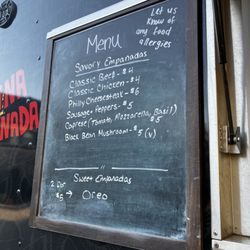 Let us
Know of
any food
allergies
Menu
Savory Empanadas
Classic Beef - $4
Classic Chicken - $4
Philly Cheesesteak - $6
Sausage + Peppers - $5
Caprese (Tomato, Mozzarella, Basil) $5
Black Bean Mushroom - $5 (v)
Sweet Empanadas
2 for
$5 → Oreo
NADA